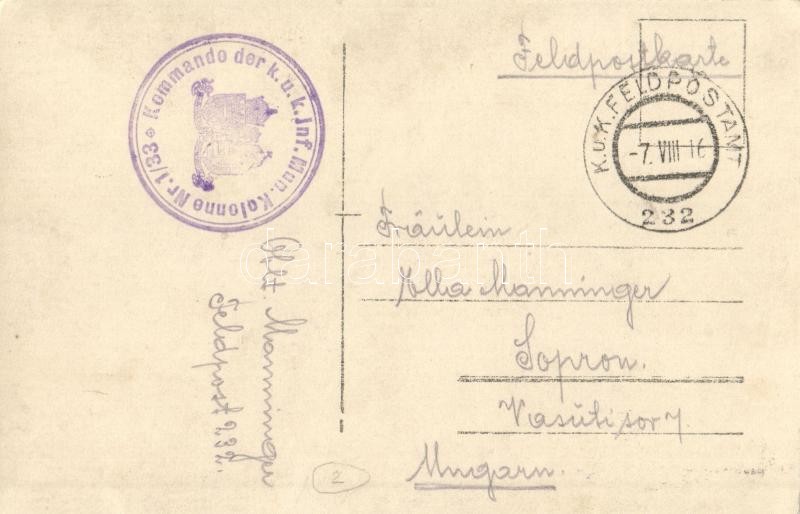 Feldpostkarte
Kommando der k.u.k. Inf. Mun. Kolonne Nr. 1/33
K.u.K. FELDPOSTAMT
-7. VIII 16
232
Fräulein
Ella Manninger
Sopron.
Vasúti sor 7.
Ungarn.
Manninger
Feldpost 232.
darabanth
2